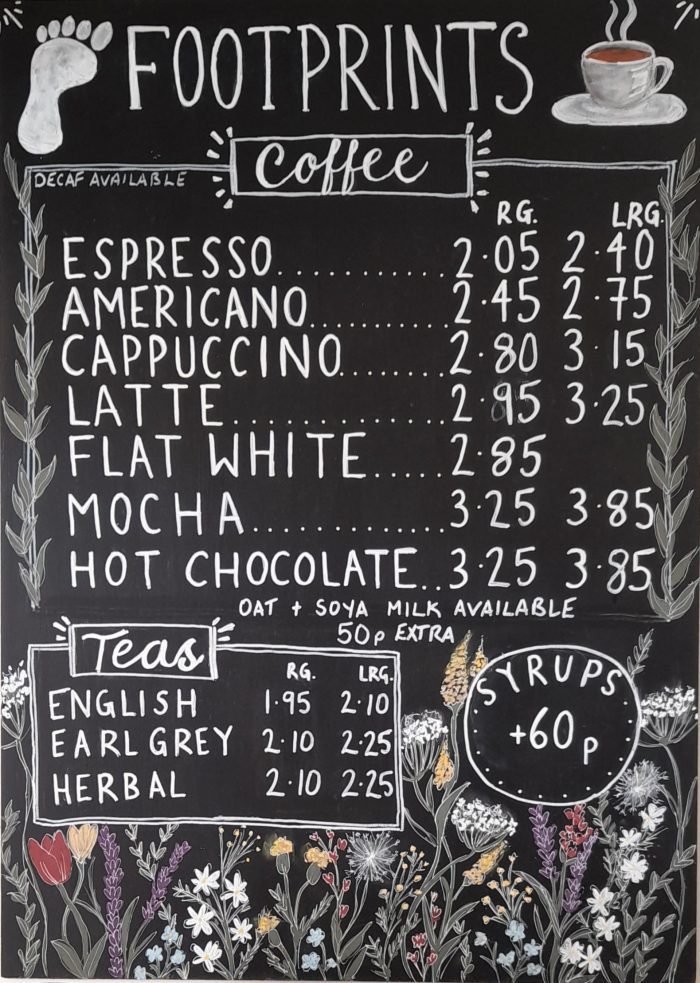 FOOTPRINTS
Coffee
DECAF AVAILABLE
RG. LRG.
ESPRESSO............2.05 2.40
AMERICANO..........2.45 2.75
CAPPUCCINO........2.80 3.15
LATTE..............2.95 3.25
FLAT WHITE.....2.85
MOCHA.............3.25 3.85
HOT CHOCOLATE..3.25 3.85
OAT + SOYA MILK AVAILABLE
50p EXTRA
Teas
RG. LRG.
ENGLISH 1.95 2.10
EARL GREY 2.10 2.25
HERBAL 2.10 2.25
SYRUPS
+60p